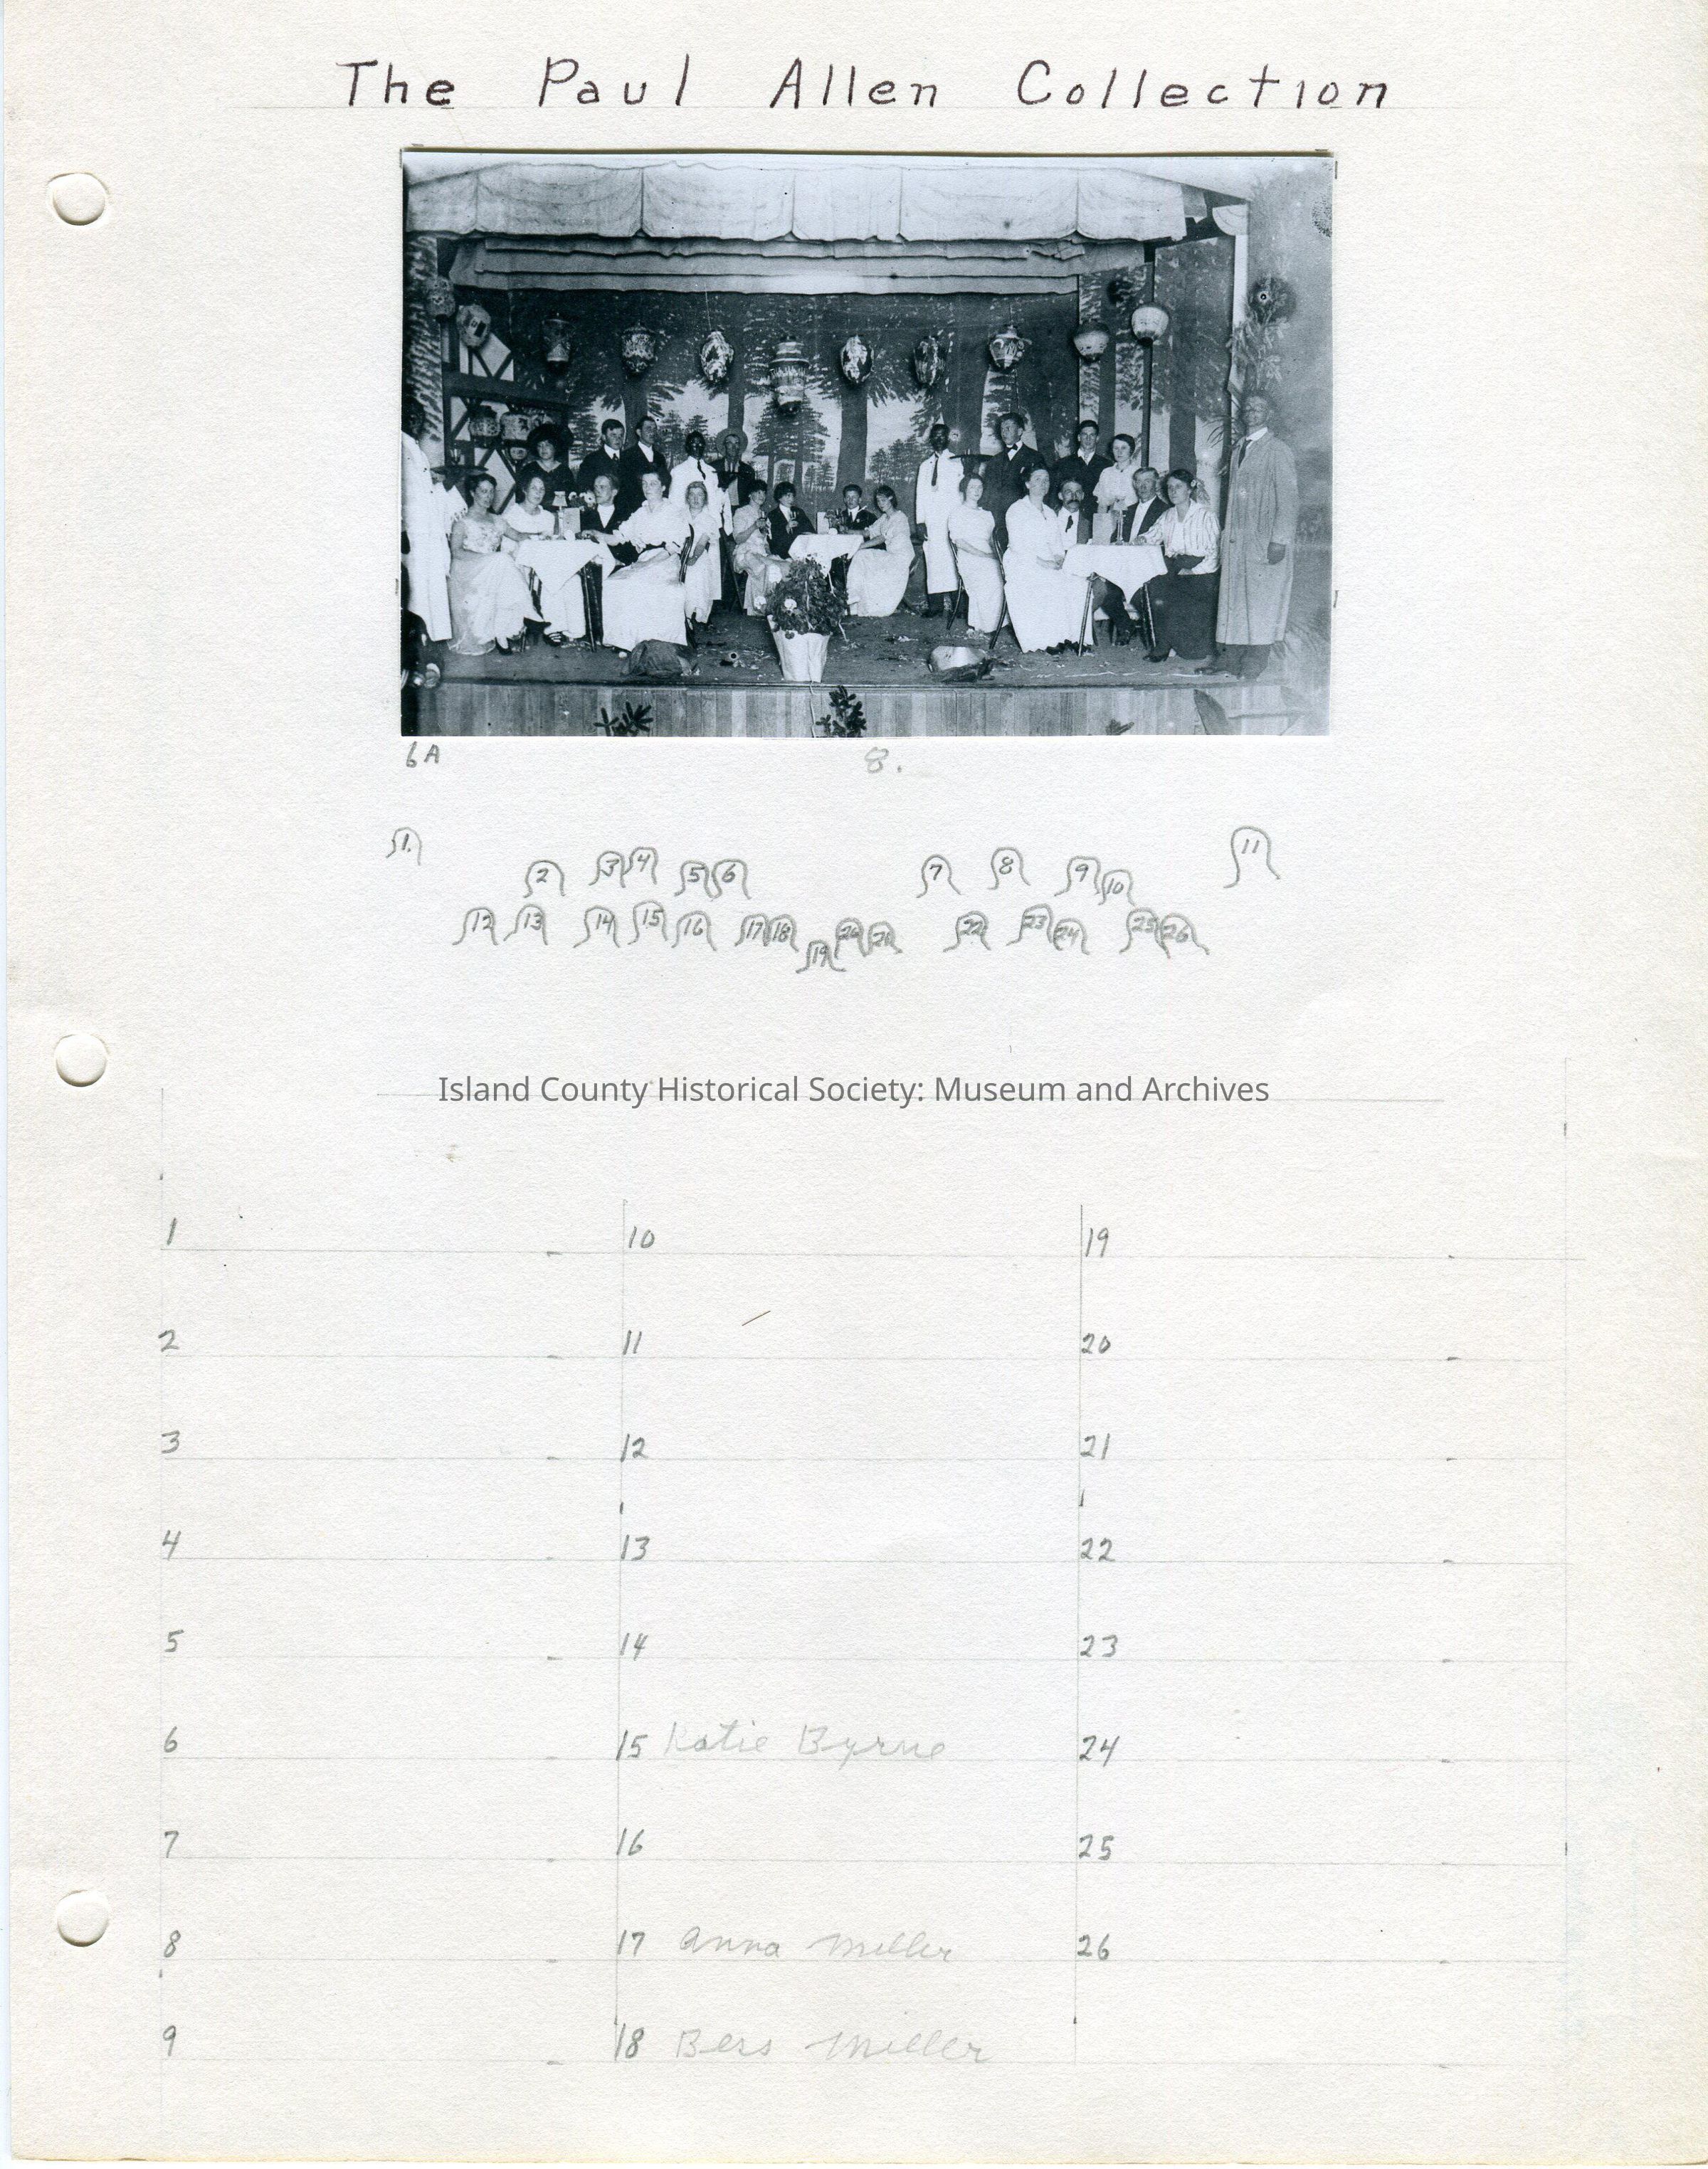 The Paul Allen Collection
6A 8.
1.
2 3 4 5 6 7 8 9 10 11
12 13 14 15 16 17 18 19 20 21 22 23 24 25 26
Island County Historical Society: Museum and Archives
1 10 19
2 11 20
3 12 21
4 13 22
5 14 23
6 15 Katie Byrne 24
7 16 25
8 17 Anna Miller 26
9 18 Bess Miller